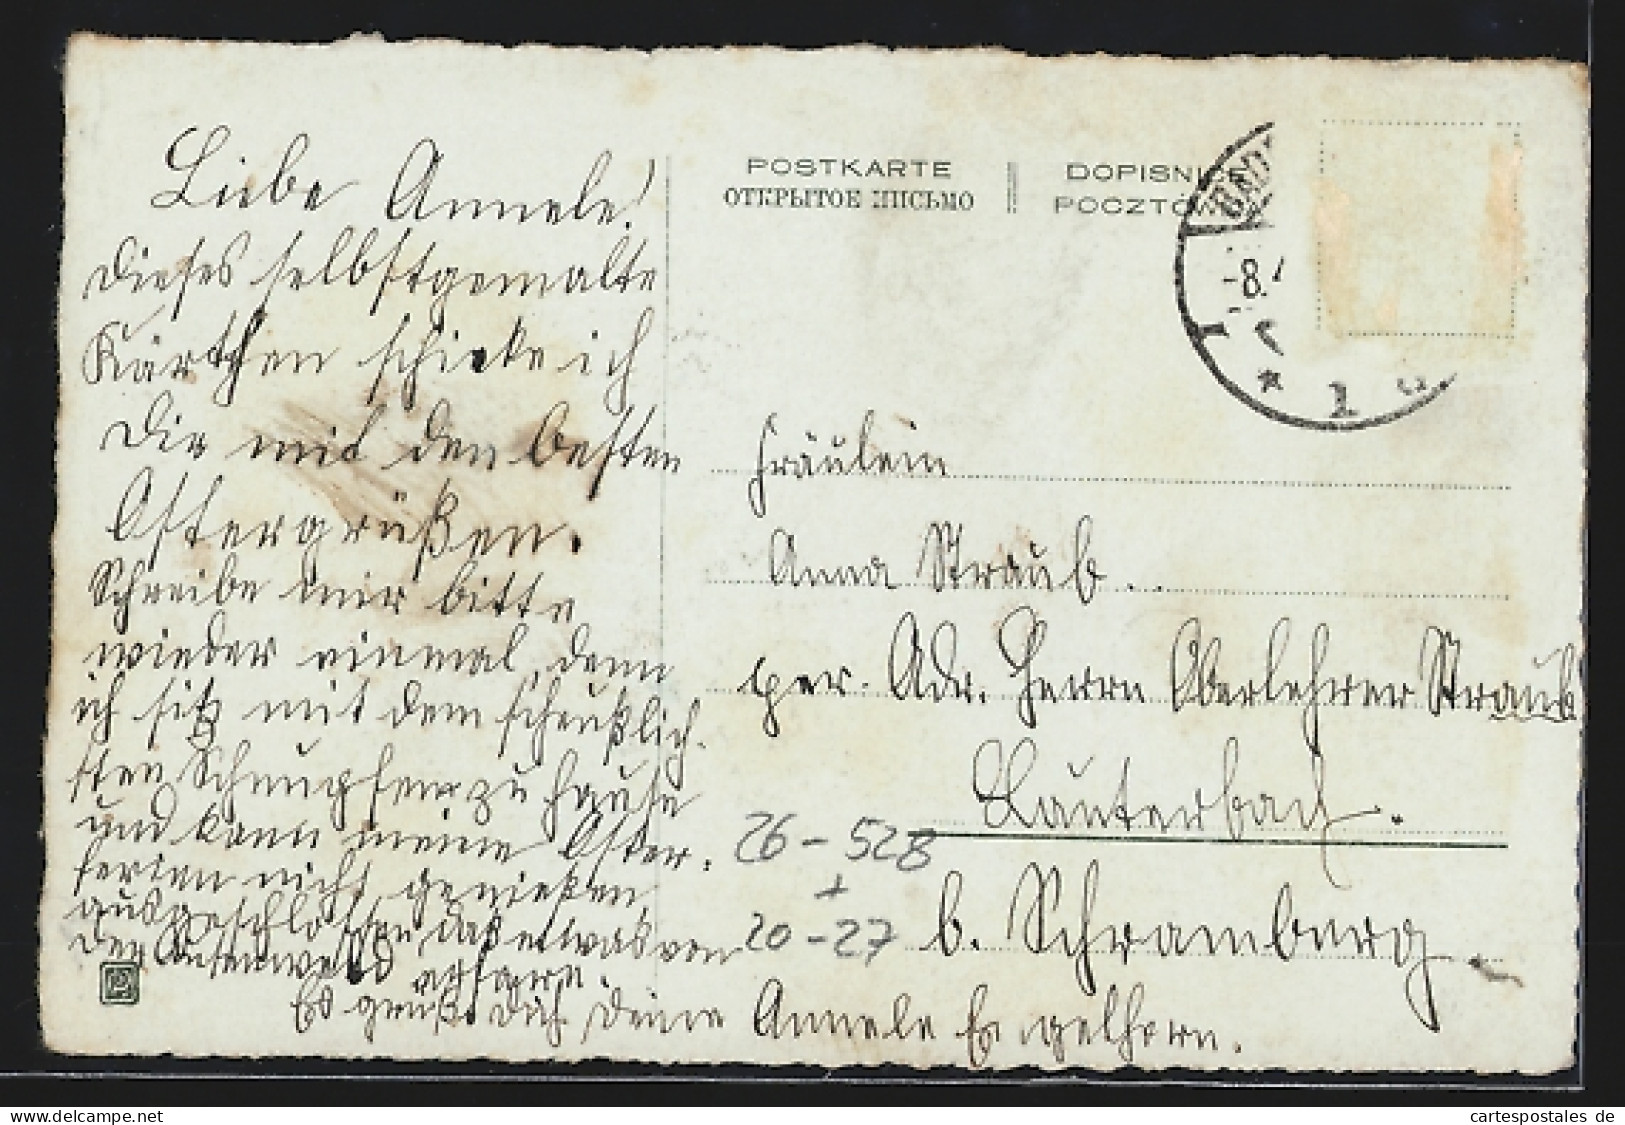 Liebe Annele!
Dieses selbstgemalte
Kärtchen schicke ich
Dir mit den besten
Ostergrüßen.
Schreibe mir bitte
wieder einmal, denn
ich sitz mit dem scheußlich-
sten Schnupfen zu Hause
und kann meine Oster-
ferien nicht genießen
ausgeschlossen, daß etwas von
der
Es grüßt Dich Deine Annele Engelhorn.
POSTKARTE
ОТКРЫТОЕ ПИСЬМО
DOPISNICE
POCZTÓW
-8.
1
Fräulein
Anna Straub.
per. Adr. Herrn Oberlehrer Straub
Lauterbach.
b. Schramberg.
26-528
+
20-27
cartespostales de